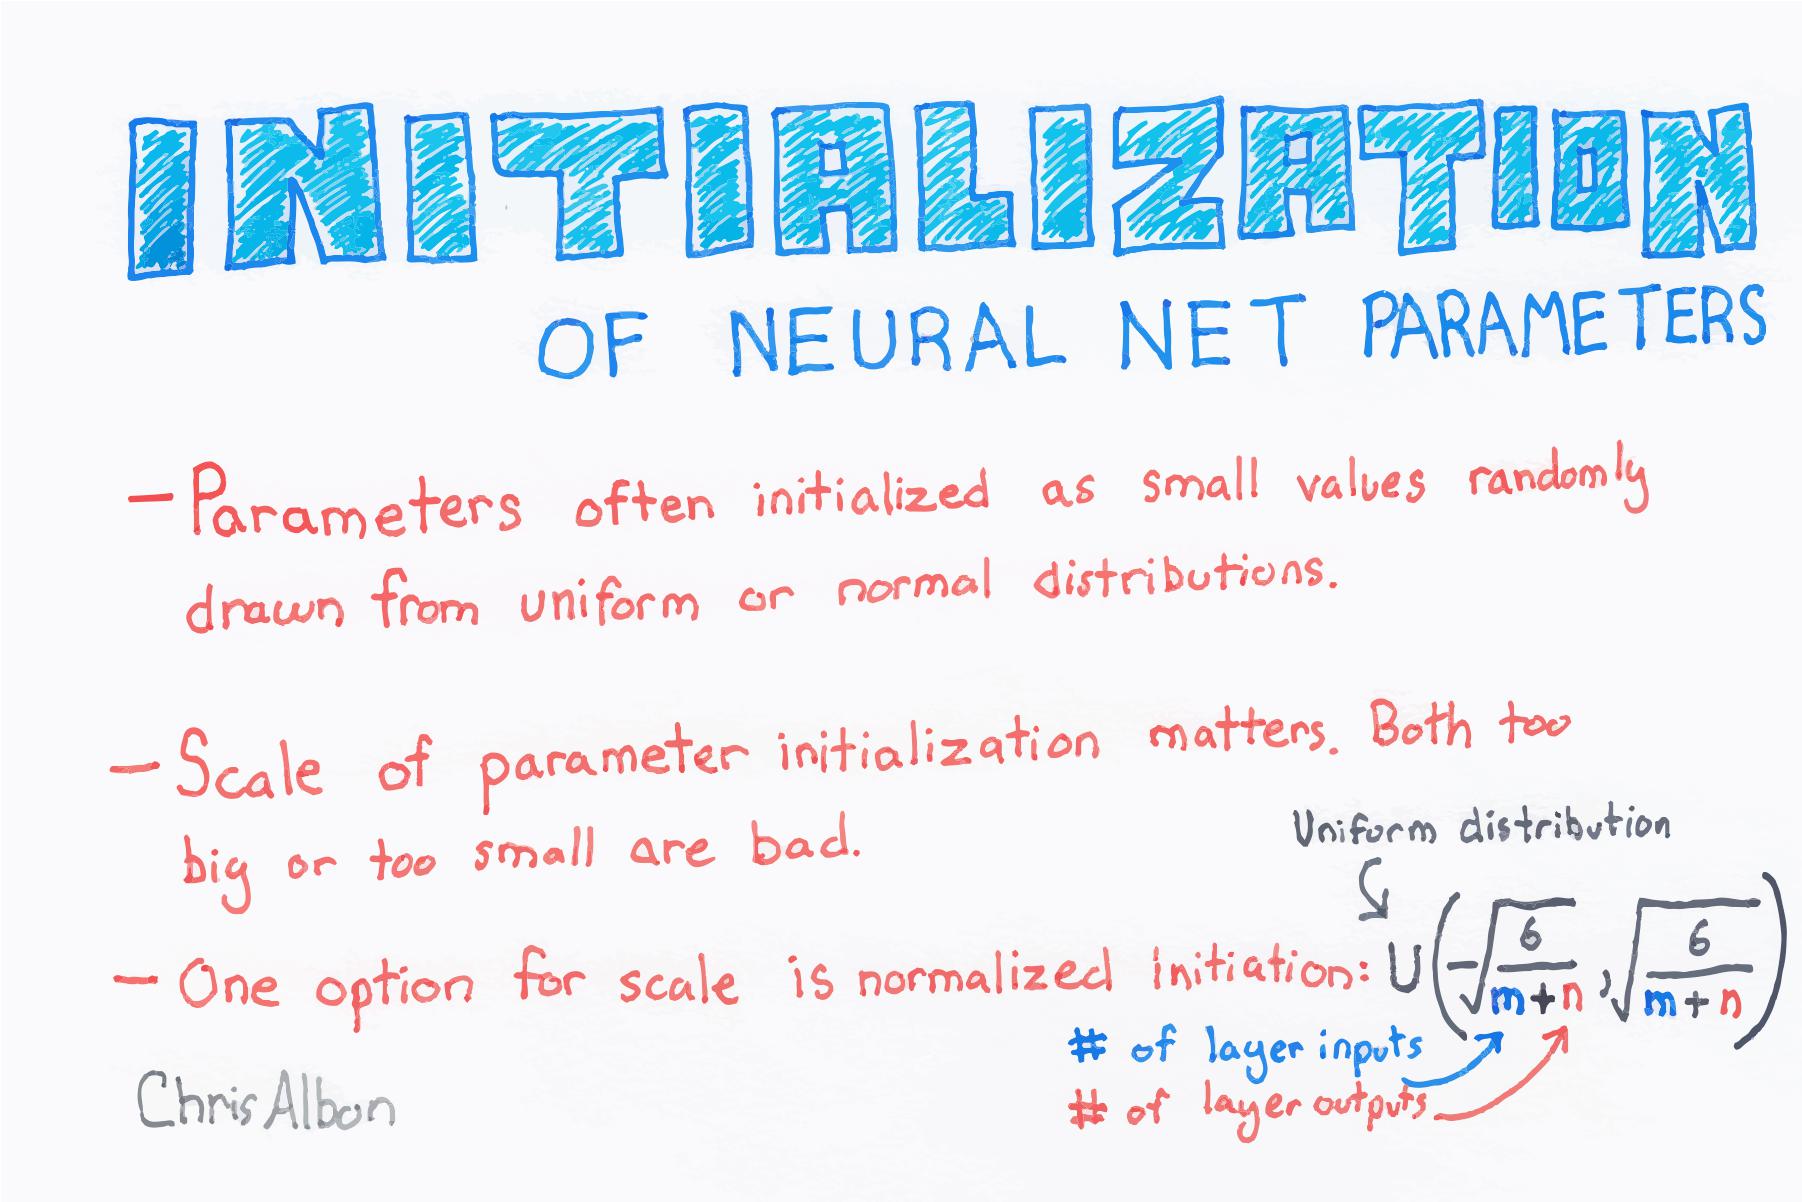 INITIALIZATION
OF NEURAL NET PARAMETERS
- Parameters often initialized as small values randomly
drawn from uniform or normal distributions.
- Scale of parameter initialization matters. Both too
big or too small are bad.
Uniform distribution
- One option for scale is normalized initiation: U(-√(6/(m+n)), √(6/(m+n)))
# of layer inputs
# of layer outputs
Chris Albon